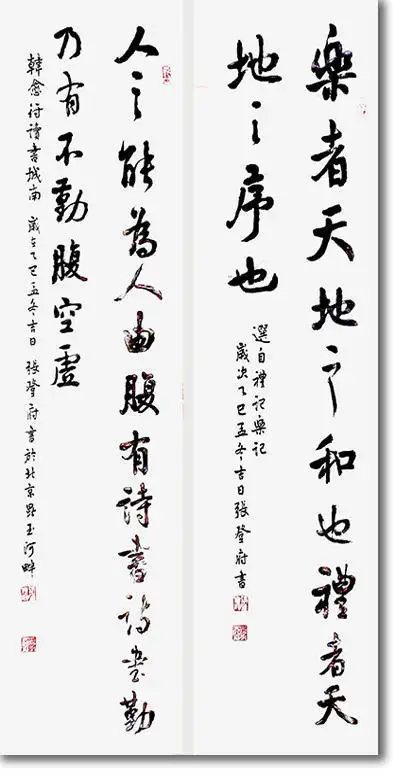 樂者天地之和也禮者天
地之序也
選自禮記樂記
歲次乙巳孟冬吉日張登府書
人之能為人由腹有詩書詩書勤
乃有不勤腹空虛
韓愈符讀書城南 歲在乙巳孟冬吉日 張登府書於北京昆玉河畔